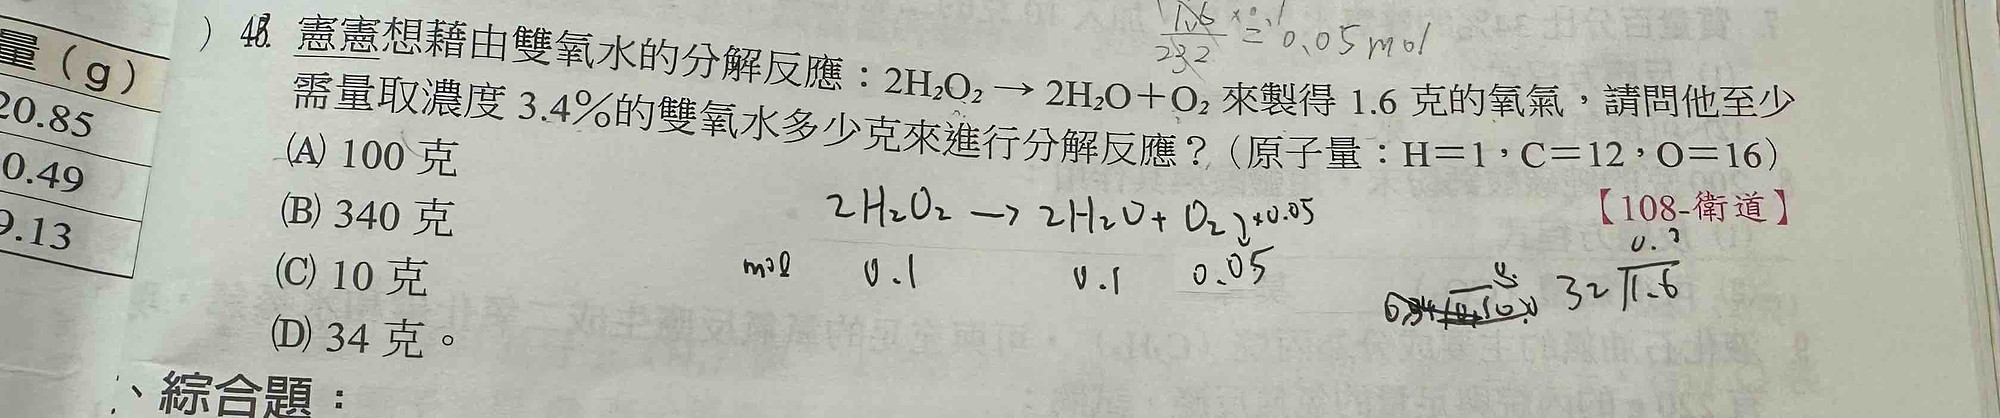 1.6
232 = 0.05mol
量(g)
20.85
0.49
9.13
) 48. 憲憲想藉由雙氧水的分解反應：2H₂O₂→2H₂O＋O₂ 來製得 1.6 克的氧氣，請問他至少
需量取濃度 3.4％的雙氧水多少克來進行分解反應？（原子量：H＝1，C＝12，O＝16）
(A) 100 克
【108-衛道】
(B) 340 克
2H₂O₂ → 2H₂O + O₂ ×0.05
mol 0.1 0.1 0.05
32 1.6
(C) 10 克
(D) 34 克。
、綜合題：